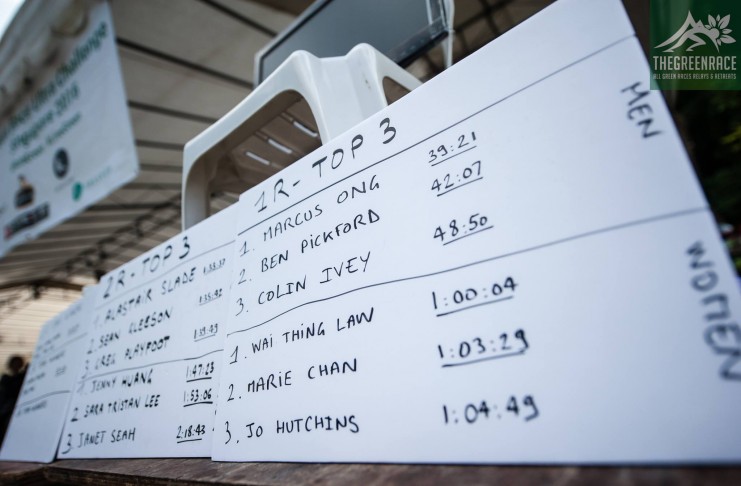 THEGREENRACE
ALL GREEN RACES RELAYS & RETREATS
Ultra Challenge
Singapore 2015
1R - TOP 3
MEN
1. MARCUS ONG 39:21
2. BEN PICKFORD 42:07
3. COLIN IVEY 48:50
WOMEN
1. WAI THING LAW 1:00:04
2. MARIE CHAN 1:03:29
3. JO HUTCHINS 1:04:49
2R - TOP 3
1. ALASTAIR SLADE
2. SEAN GLEESON
3. GREG PLAYFOOT
1. JENNY HUANG 1:47:23
2. SARA TRISTAN LEE 1:53:06
3. JANET SEAH 2:18:43